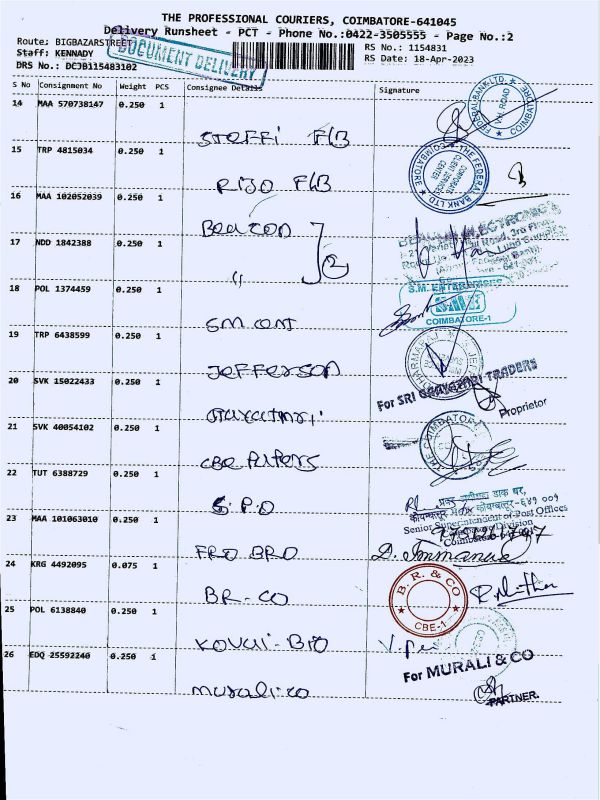 THE PROFESSIONAL COURIERS, COIMBATORE-641045
Delivery Runsheet - PCT - Phone No.:0422-3505555 - Page No.:2
Route: BIGBAZARSTREET
Staff: KENNADY
DRS No.: DCJB115483102
DOCUMENT DELIVERY
RS No.: 1154831
RS Date: 18-Apr-2023
S No Consignment No Weight PCS Consignee Details Signature
14 MAA 570738147 0.250 1
STEFFI F/B
FEDERAL BANK LTD. COIMBATORE
15 TRP 4815034 0.250 1
RIJO F/B
THE FEDERAL BANK LTD COIMBATORE
16 MAA 102052039 0.250 1
Beacon
17 NDD 1842388 0.250 1
"
2
18 POL 1374459 0.250 1
S.M. ENTERPRISES
SME
COIMBATORE-1
S.M. ent
19 TRP 6438599 0.250 1
Jefferson
For SRI GAAYATHRI TRADERS
Proprietor
20 SVK 15022433 0.250 1
Gaayathri
21 SVK 40054102 0.250 1
THE COIMBATORE
CBE Papers
22 TUT 6388729 0.250 1
S.P.O
कोयम्बत्तूर-६४१ ००१
Senior Superintendent of Post Offices
23 MAA 101063010 0.250 1
FRO BRO
D. Immanuel
24 KRG 4492095 0.075 1
BR-CO
B. R. & CO
CBE-1
25 POL 6138840 0.250 1
KOVAI-BIO
26 EDQ 25592240 0.250 1
For MURALI & CO
PARTNER.
Murali-co